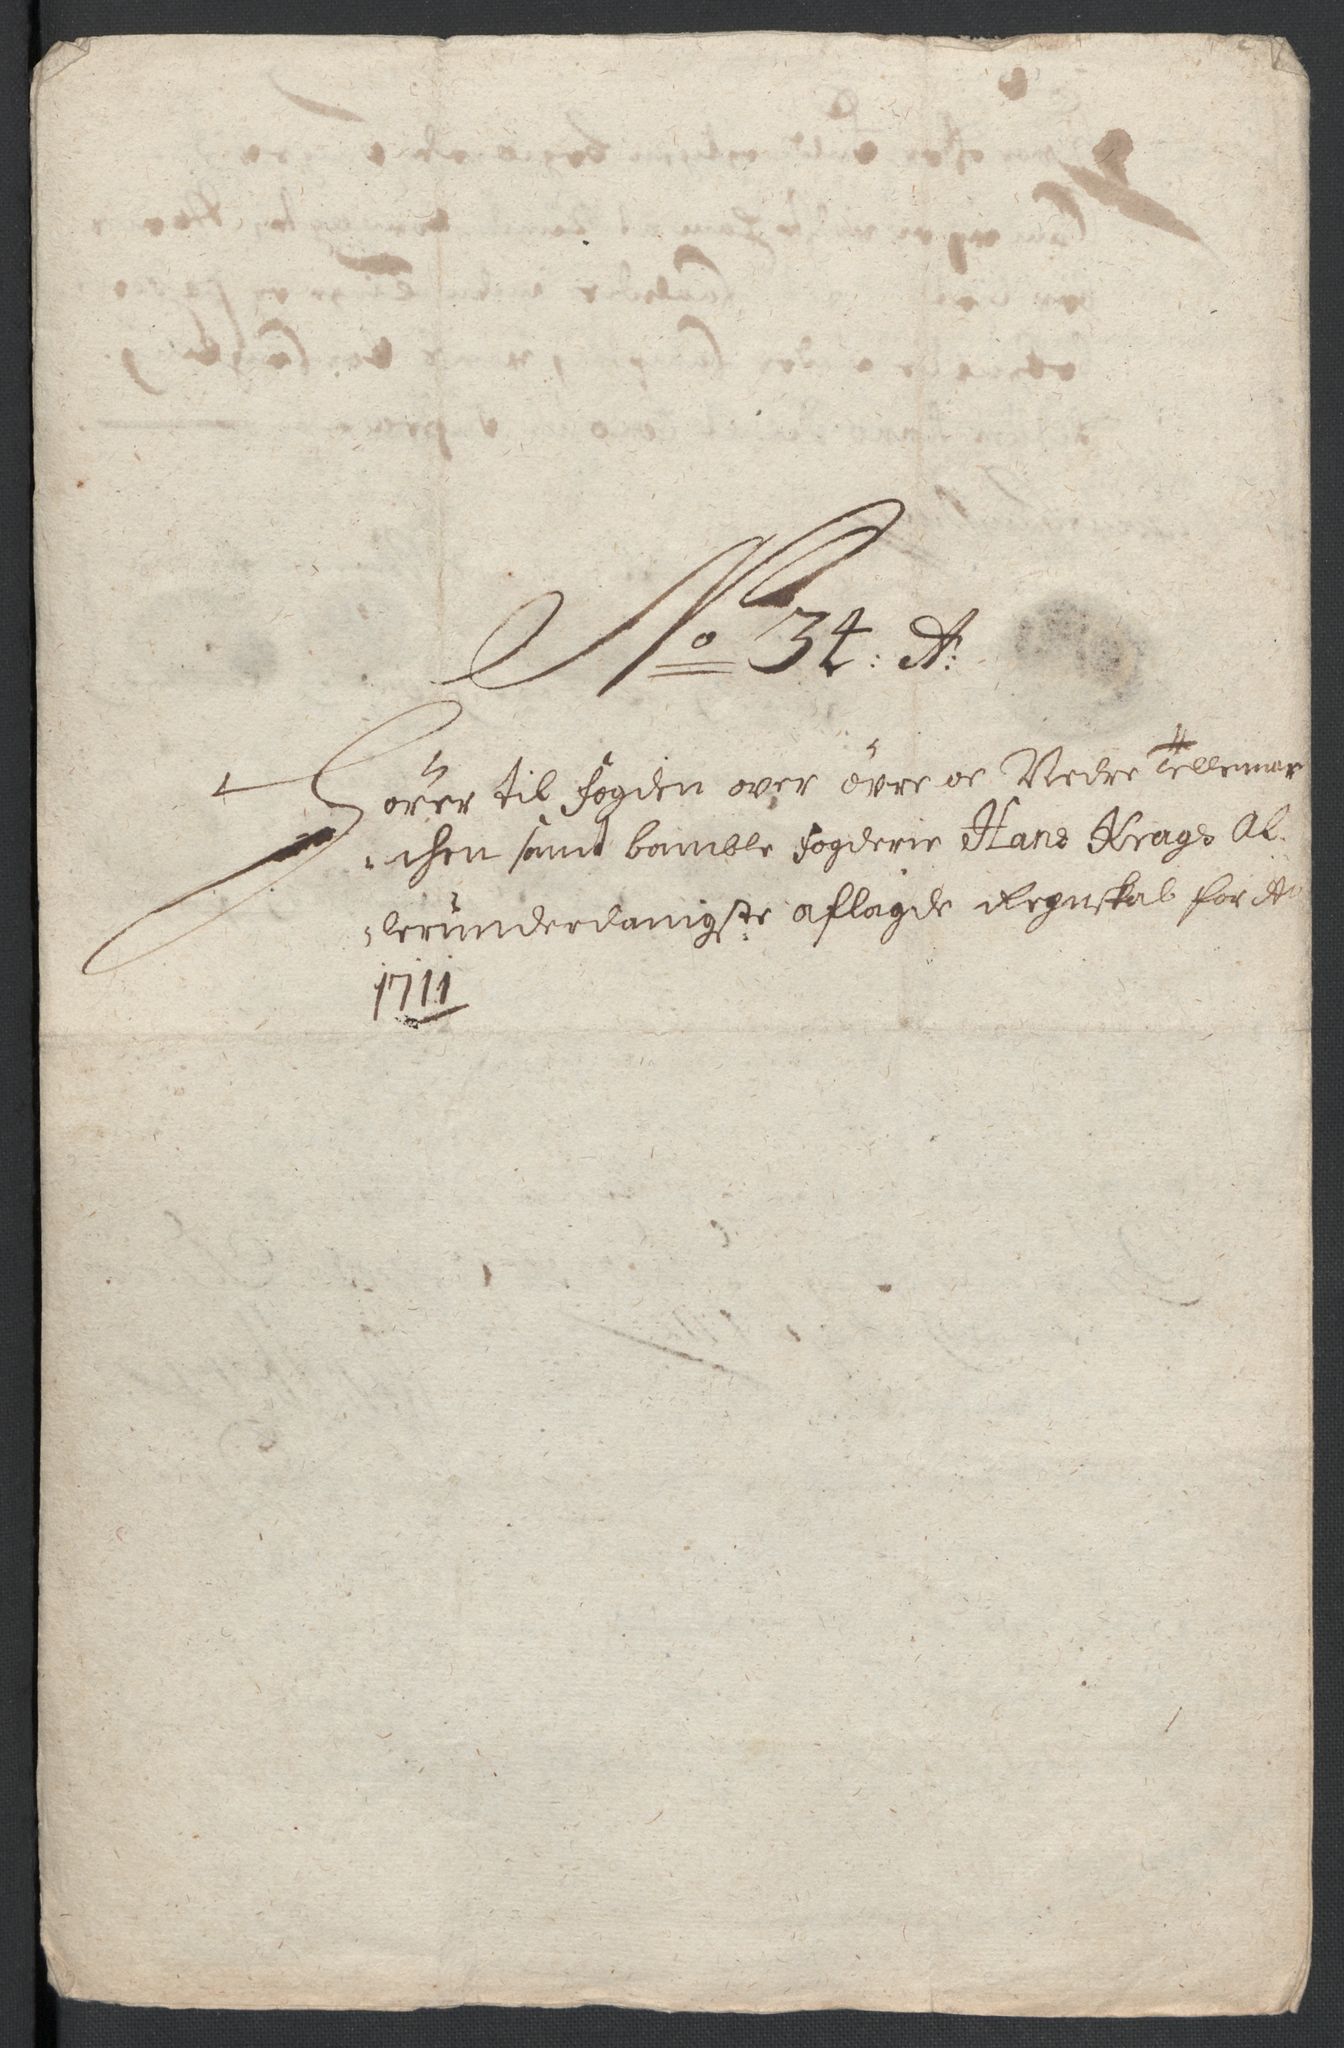 No 34: A:
Hörer til fogden over övre oc Nedre Tellemar
-chen samt bamble fogderie Hans Krags Al-
-lerunderdanigste aflagde Regnskab for Ao
1711